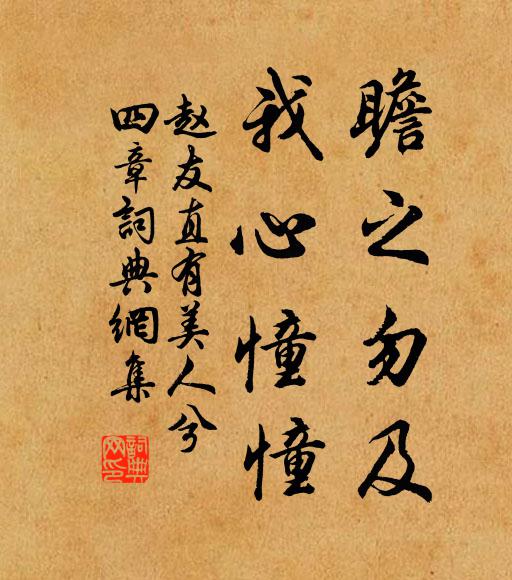 瞻之勿及
我心憧憧
赵友直有美人兮
四章詞典網集
詞典网印